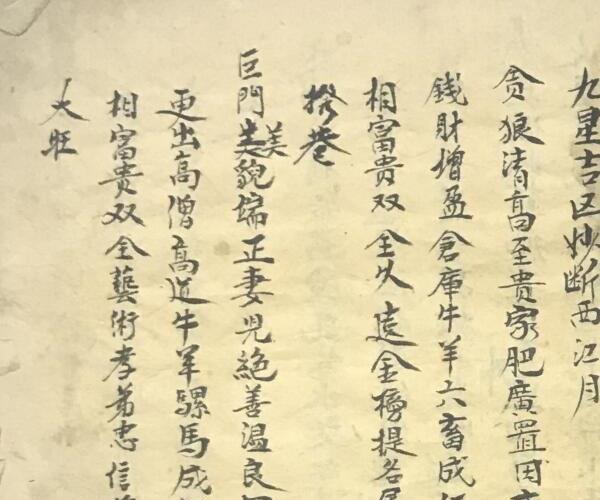 九星吉凶妙断西江月
贪狼清高至貴家肥廣置因
錢財增盈倉庫牛羊六畜成
相富貴双全久遠金榜提名
撥巻
巨門美貌端正妻児絶善温良
更出高僧高道牛羊騾馬成
相富貴双全藝術孝弟忠信
大旺